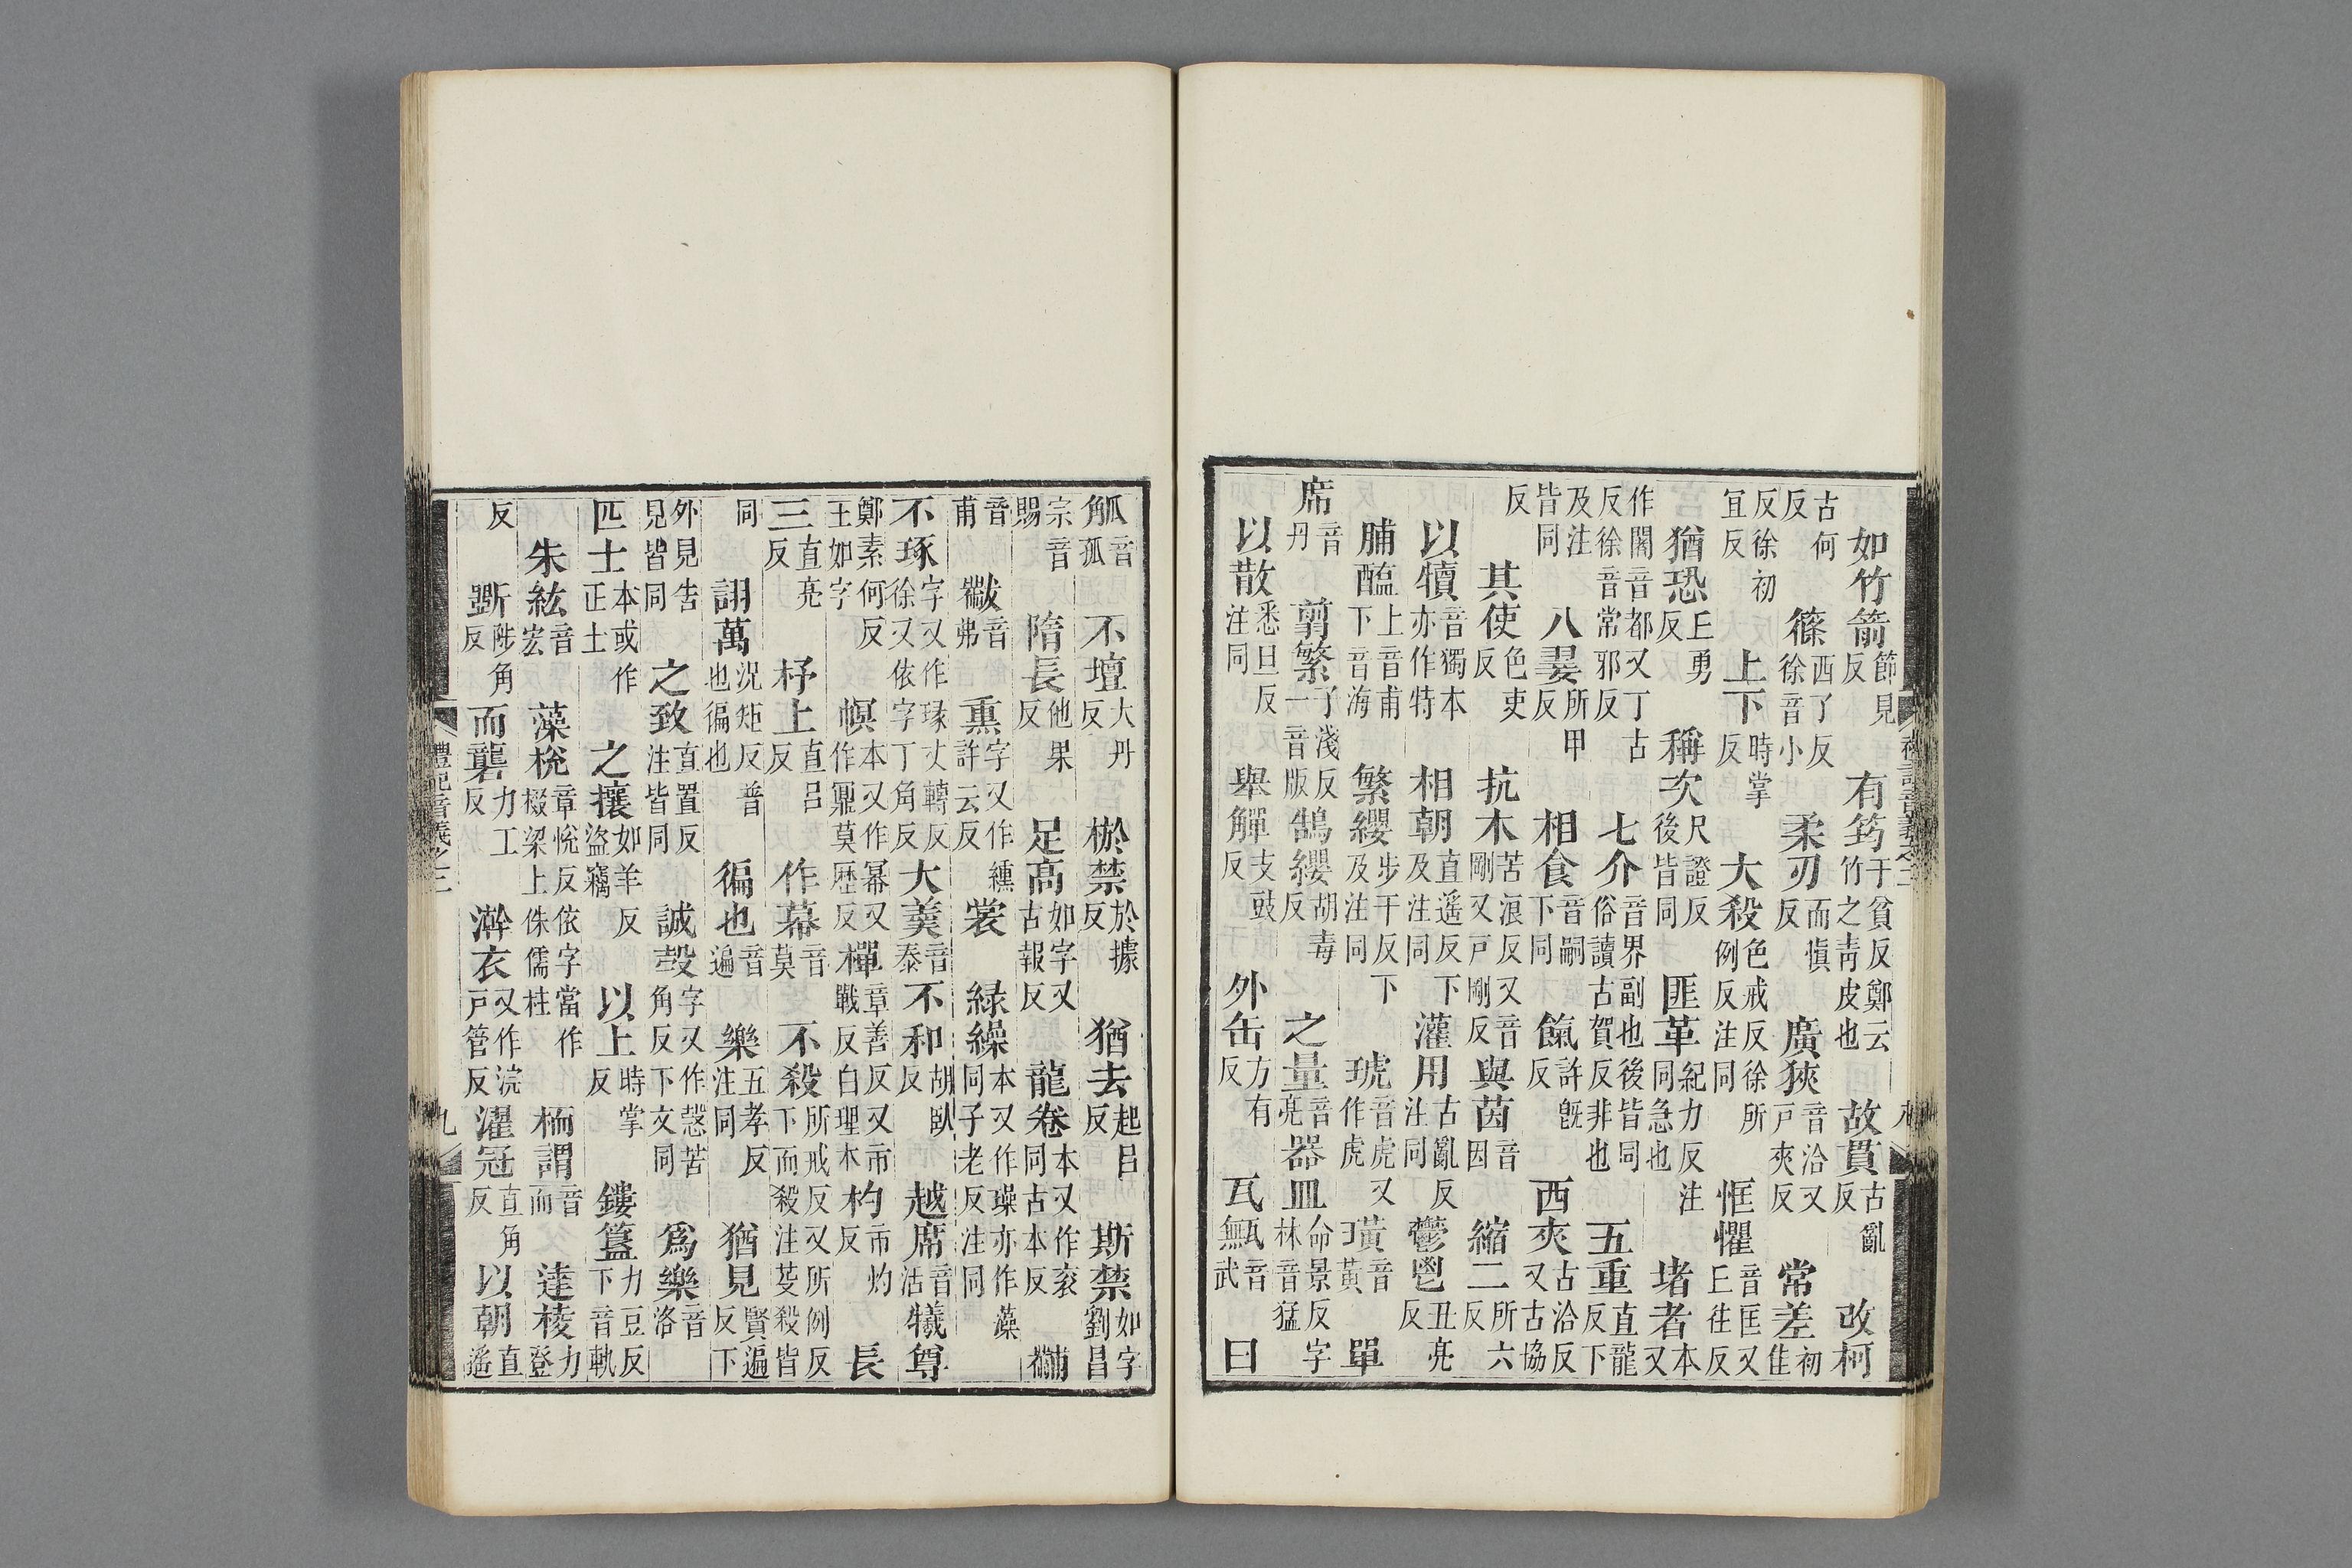 如竹箭節見反有筠于貧反鄭云竹之靑皮也故貫古亂反改柯
古何反篠西了反徐音小柔刃而愼反廣狹音洽又戶夾反常差初佳
反徐初宜反上下時掌反大殺色戒反徐所例反注同恇懼音匡又丘往反
猶恐丘勇反稱次尺證反後皆同匪革紀力反注同急也堵者本又
作闍音都又丁古反徐音常邪反七介音界副也後皆同俗讀古賀反非也五重直龍反下
及注皆同八翣所甲反相食音嗣下同餼許旣反西夾古洽反又古協
反其使色吏反抗木苦浪反又音剛又戶剛反與茵音因縮二所六反
以犢音獨本亦作特相朝直遙反下及注同灌用古亂反注同鬱鬯丑亮反
脯醢上音甫下音海繁纓步干反下及注同琥音虎又作虎璜音黃單
席音丹翦繁子淺反一音版鵠纓胡毒反之量音亮器皿命景反字林音猛
以散悉旦反注同舉觶支豉反外缶方有反瓦甒音武曰
禮記音義之二
九
觚音孤不壇大丹反棜禁於據反猶去起呂反斯禁如字劉昌
宗音賜隋長他果反足高如字又古報反龍卷本又作衮同古本反黼
音甫黻音弗熏字又作纁許云反裳綠繅本又作璪亦作藻同子老反注同
不琢字又作瑑丈轉反徐又依字丁角反大羹音泰不和胡臥反越席音活犧尊
鄭素何反王如字幎本又作冪又作鼏莫歷反樿章善反又市戰反白理木杓市灼反長
三直亮反杼上直呂反作幕音莫不殺所戒反又所例反下而殺注芟殺皆
同詡萬況矩反普也徧也徧也音遍樂五孝反注同猶見賢遍反下
外見告見皆同之致直置反注皆同誠愨字又作慤苦角反下文同爲樂音洛
匹士本或作正士之攘如羊反盜竊以上時掌反鏤簋力豆反下音軌
朱紘音宏藻梲章悅反依字當作棁梁上侏儒柱栭謂音而達棱力登
反斲陟角反而礱力工反澣衣又作浣戶管反濯冠直角反以朝直遙
禮記音義之二
九